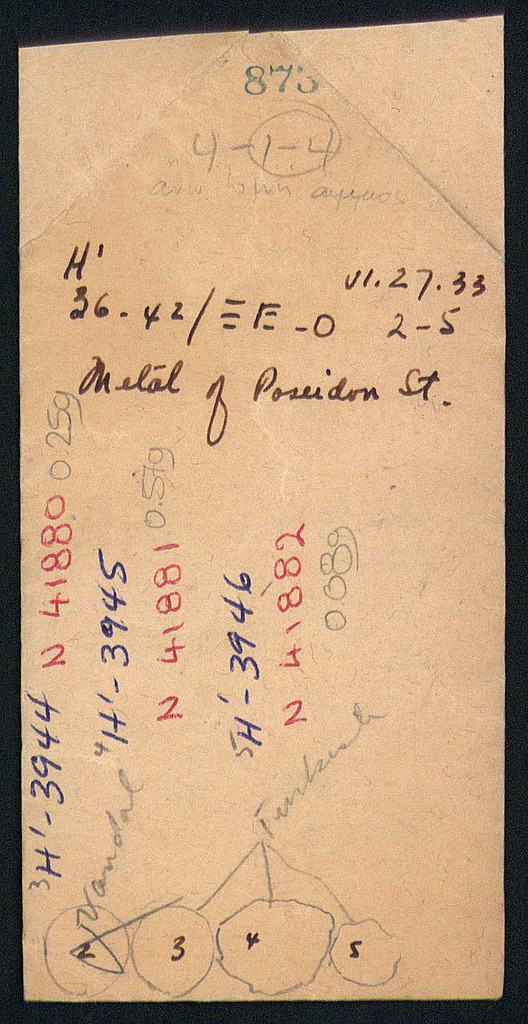 873
4-1-4
άνω
H'
VI.27.33
36-42/ΞΕ-0 2-5
Metal of Poseidon St.
3H'-3944 N 41880 0.25g
4H'-3945
N 41881 0.57g
5H'-3946
N 41882
0.08g
Vandal
Turkish
2 3 4 5